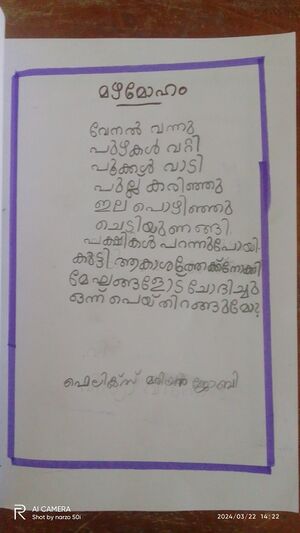 മഴമോഹം
വേനൽ വന്നു
പുഴകൾ വറ്റി
പൂക്കൾ വാടി
പുല്ല് കരിഞ്ഞു
ഇല പൊഴിഞ്ഞു
ചെട്ടിയുണങ്ങി
പക്ഷികൾ പറന്നുപോയി.
കുട്ടി ആകാശത്തേക്ക്നോക്കി
മേഘങ്ങളോട് ചോദിച്ചു
ഒന്ന് പെയ്തിറങ്ങുമോ?
ഫെലിക്സ് മരിയൻ ജോബി
AI CAMERA
Shot by narzo 50i
2024/03/22 14:22